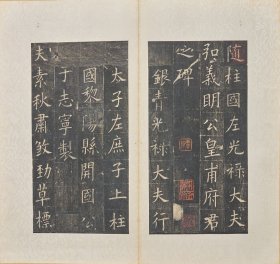 隨柱國左光祿大夫
弘義明公皇甫府君
之碑
銀青光祿大夫行
太子左庶子上柱
國黎陽縣開國公
于志寧製
夫素秋肅煞勁草標